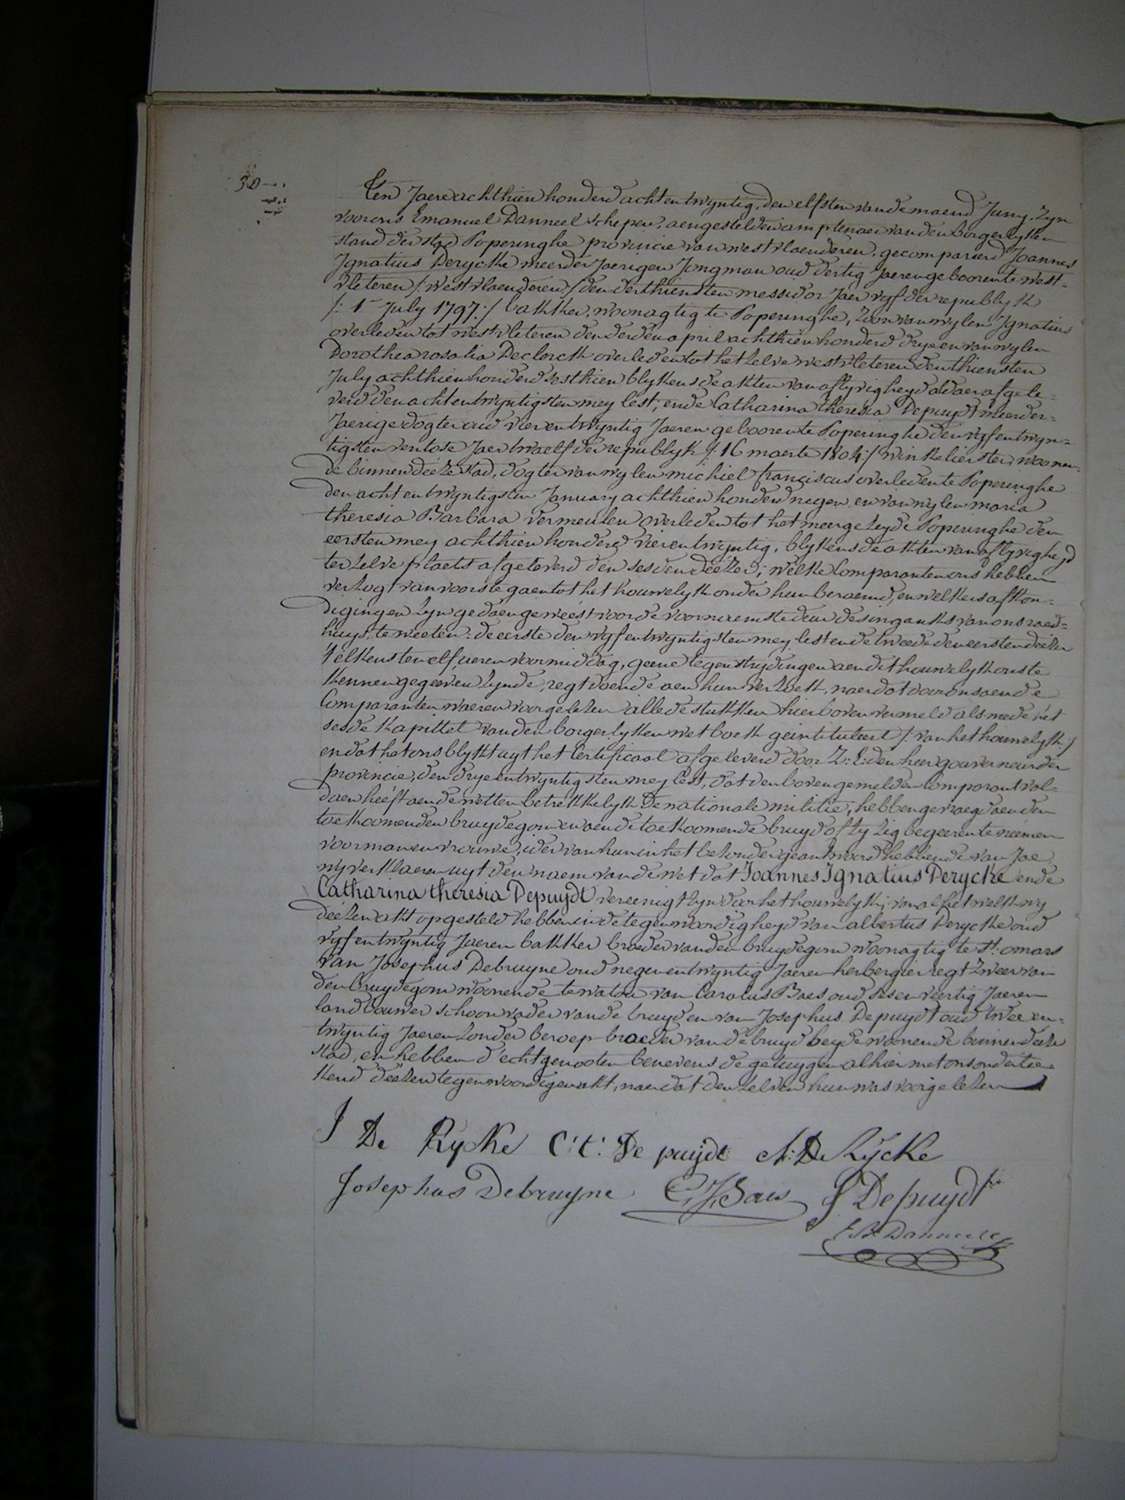 30
Ten Jaere achthien honderd acht en twyntig, den elfsten van de maend Juny, zyn
voor ons Emanuel Danneel Schepen, aengestelden amptenaer van den borgerlyken
stand der stad Poperinghe provincie van westvlaenderen, gecompareerd Joannes
Ignatius Derycke meerderjaerigen Jongman oud dertig Jaeren geboren te west-
vleteren / westvlaenderen / den derthiensten messidor Jaer vyf der republyk
/: 1 July 1797 :/ bakker, woonagtig te Poperinghe, zoon van wylen Ignatius
overleden tot westvleteren den derden april achthien honderd drye en van wylen
Dorothea rosalia Declerck overleden tot het zelve westvleteren den thiensten
July achthien honderd sesthien blykens de akten van aflyvigheyd aldaer afgele-
verd den achtentwyntigsten mey lest, ende Catharina theresia Depuydt meerder-
Jaerige dogter oud vierentwyntig Jaeren geboren te Poperinghe den vyfentwyn-
tigsten ventose Jaer twaelf der republyk /: 16 maerte 1804 :/ winkelierster, woonen-
de binnen deeze stad, dogter van wylen michiel franciscus overleden te Poperinghe
den achtentwyntigsten January achthien honderd negen, en van wylen maria
theresia Barbara Vermeulen overleden tot het meergezeyde Poperinghe den
eersten mey achthien honderd vierentwyntig, blykens de akten van aflyvigheyd
ter zelve plaets afgeleverd den sesden deezer; welke Comparanten ons hebben
verzogt van voorts te gaen tot het houwelyk onder hun beraemd, en welkers afkon-
digingen zyn gedaen geweest voor de voornaemste deur des ingankx van ons raed-
huys, te weeten: de eerste den vyfentwyntigsten mey lest en de tweede den eersten deezer
telkens ten elf ueren voormiddag, geene tegenstrydingen aen dit houwelyk ons te
kennen gegeven zynde, regt doende aen hun verzoek, naer dat door ons aen de
Comparanten waeren voorgelezen alle de stukken hier boven vermeld als mede het
sesde kapittel van den borgerlyken wetboek geintituleert / van het houwelyk /
en dat het ons blykt uyt het Certificaet afgeleverd door Z: E: den heer gouverneur der
provincie, den drye en twyntigsten mey lest, dat den bovengemelden Comparant vol-
daen heeft aen de wetten betrekkelyk de nationale militie, hebben gevraegd aen den
toekoomenden bruydegom en aen de toekoomende bruyd of zy zig begeeren te neemen
voor man en vrouwe; ider van hun in het besonder geantwoord hebbende van Jae
wy verklaeren uyt den naem van de wet dat Joannes Ignatius Derycke ende
Catharina theresia Depuydt vereenigt zyn door het houwelyk; van al het welk wy
deezen akt opgesteld hebben in de tegenwoordigheyd van albertus Derycke oud
vyfentwyntig Jaeren bakker broeder van den bruydegom woonagtig te St. omars
van Josephus Debruyne oud negenentwyntig Jaeren herbergier regtzweer van
den bruydegom woonende te watou van Carolus Baes oud sesenveertig Jaeren
landbouwer schoonvader van de bruyd en van Josephus Depuydt oud twee en-
twyntig Jaeren zonder beroep broeder van de bruyd beyde woonende binnen deeze
stad, en hebben d'echtgenooten benevens de getuygen alhier met ons ondertee-
kend deezen tegenwoordigen akt, naer dat den zelven hun was voorgelezen
J De Rycke C: t: De puijdt A: De Rijcke
Josephus Debruyne C J Baes J Depuydt
E. Danneel